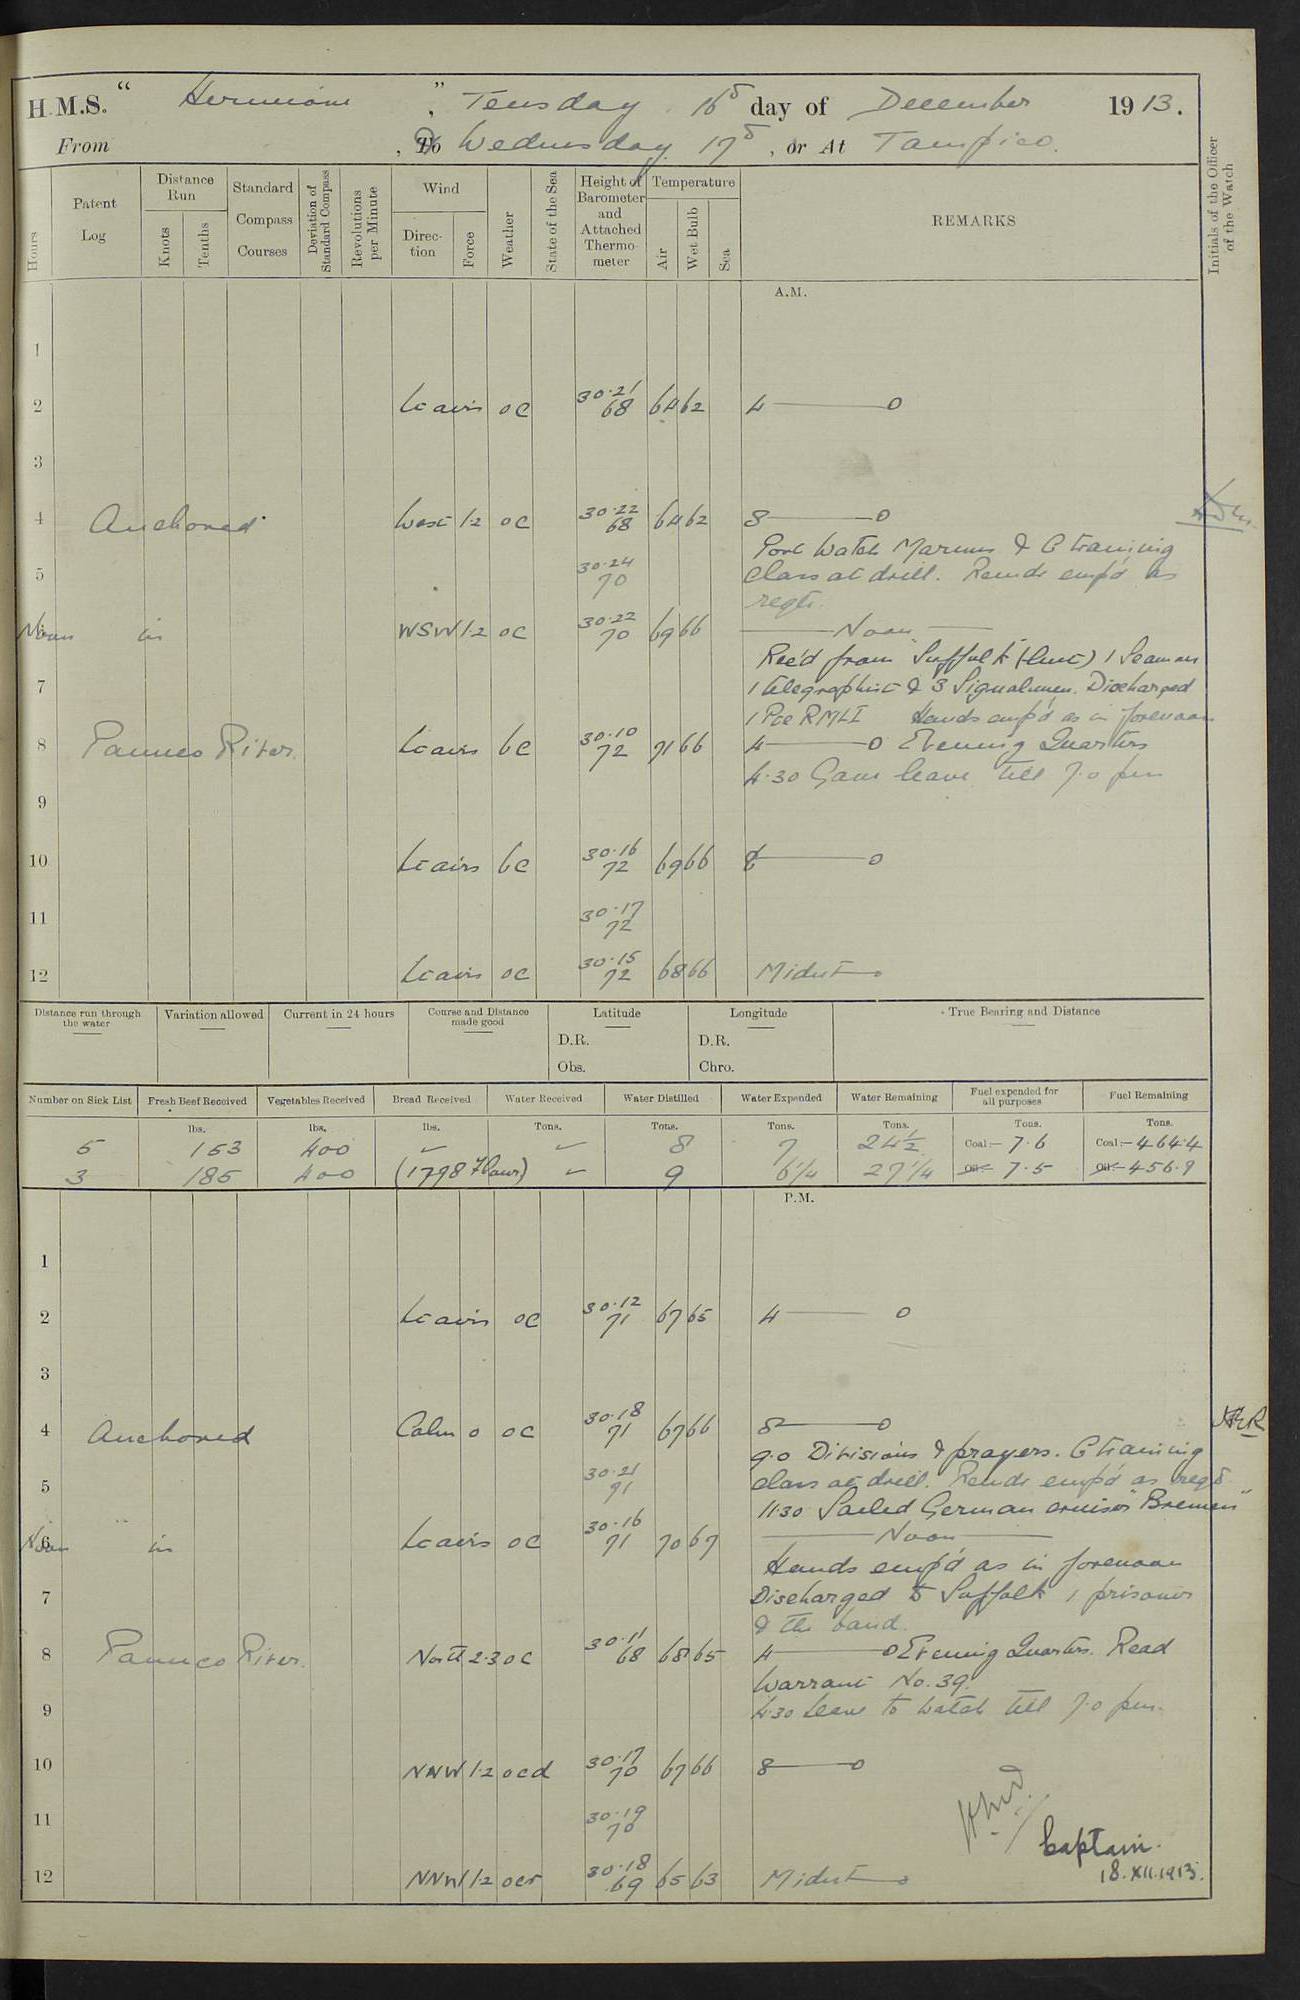 H.M.S. “ Hermione ”, Tuesday 16th day of December 1913.
From , To Wednesday 17th, or At Tampico.
Hours
Patent Log
Distance Run
Knots
Tenths
Standard Compass Courses
Deviation of Standard Compass
Revolutions per Minute
Wind
Direction
Force
Weather
State of the Sea
Height of Barometer and Attached Thermometer
Temperature
Air
Wet Bulb
Sea
REMARKS
Initials of the Officer of the Watch
A.M.
1
2 Lt airs oc 30.21 68 64 62 4 — 0
3
4 Anchored West 1.2 oc 30.22 68 64 62 8 — 0
Port Watch Marines & G training
5 30.24 70 class at drill. Remdr emp'd as
reqte.
Noon in WSW 1.2 oc 30.22 70 69 66 — Noon —
Rec'd from "Suffolk" (lent) 1 Seaman
7 1 telegraphist & 3 Signalmen. Discharged
1 Pte RMLI Hands emp'd as in forenoon
8 Panuco River. Lt airs bc 30.10 72 71 66 4 — 0 Evening Quarters
4.30 Gave leave till 7.0 pm
9
10 Lt airs bc 30.16 72 69 66 8 — 0
11 30.17 72
12 Lt airs oc 30.15 72 68 66 Midnt
Distance run through the water
Variation allowed
Current in 24 hours
Course and Distance made good
Latitude
D.R.
Obs.
Longitude
D.R.
Chro.
True Bearing and Distance
Number on Sick List Fresh Beef Received Vegetables Received Bread Received Water Received Water Distilled Water Expended Water Remaining Fuel expended for all purposes Fuel Remaining
lbs. lbs. lbs. Tons. Tons. Tons. Tons. Tons. Tons.
5 153 400 – – 8 7 24½ Coal:– 7.6 Coal:– 464.4
3 185 400 (1798 Flour) – 9 6¼ 27¼ Oil:– 7.5 Oil:– 456.9
P.M.
1
2 Lt airs oc 30.12 71 67 65 4 — 0
3
4 Anchored Calm 0 oc 30.18 71 67 66 8 — 0
9.0 Divisions & prayers. G training
5 30.21 91 class at drill. Remdr emp'd as reqd
11.30 Sailed German cruiser "Bremen"
Noon 6 in Lt airs oc 30.16 71 70 67 — Noon —
Hands emp'd as in forenoon
7 Discharged to Suffolk 1 prisoner
& the band.
8 Panuco River. North 2.3 oc 30.11 68 68 65 4 — 0 Evening Quarters. Read
Warrant No. 39.
9 4.30 Leave to watch till 7.0 pm.
10 NNW 1.2 ocd 30.17 70 67 66 8 — 0
11 30.19 70
Captain.
12 NNW 1.2 ocr 30.18 69 65 63 Midnt
18.XII.1913.